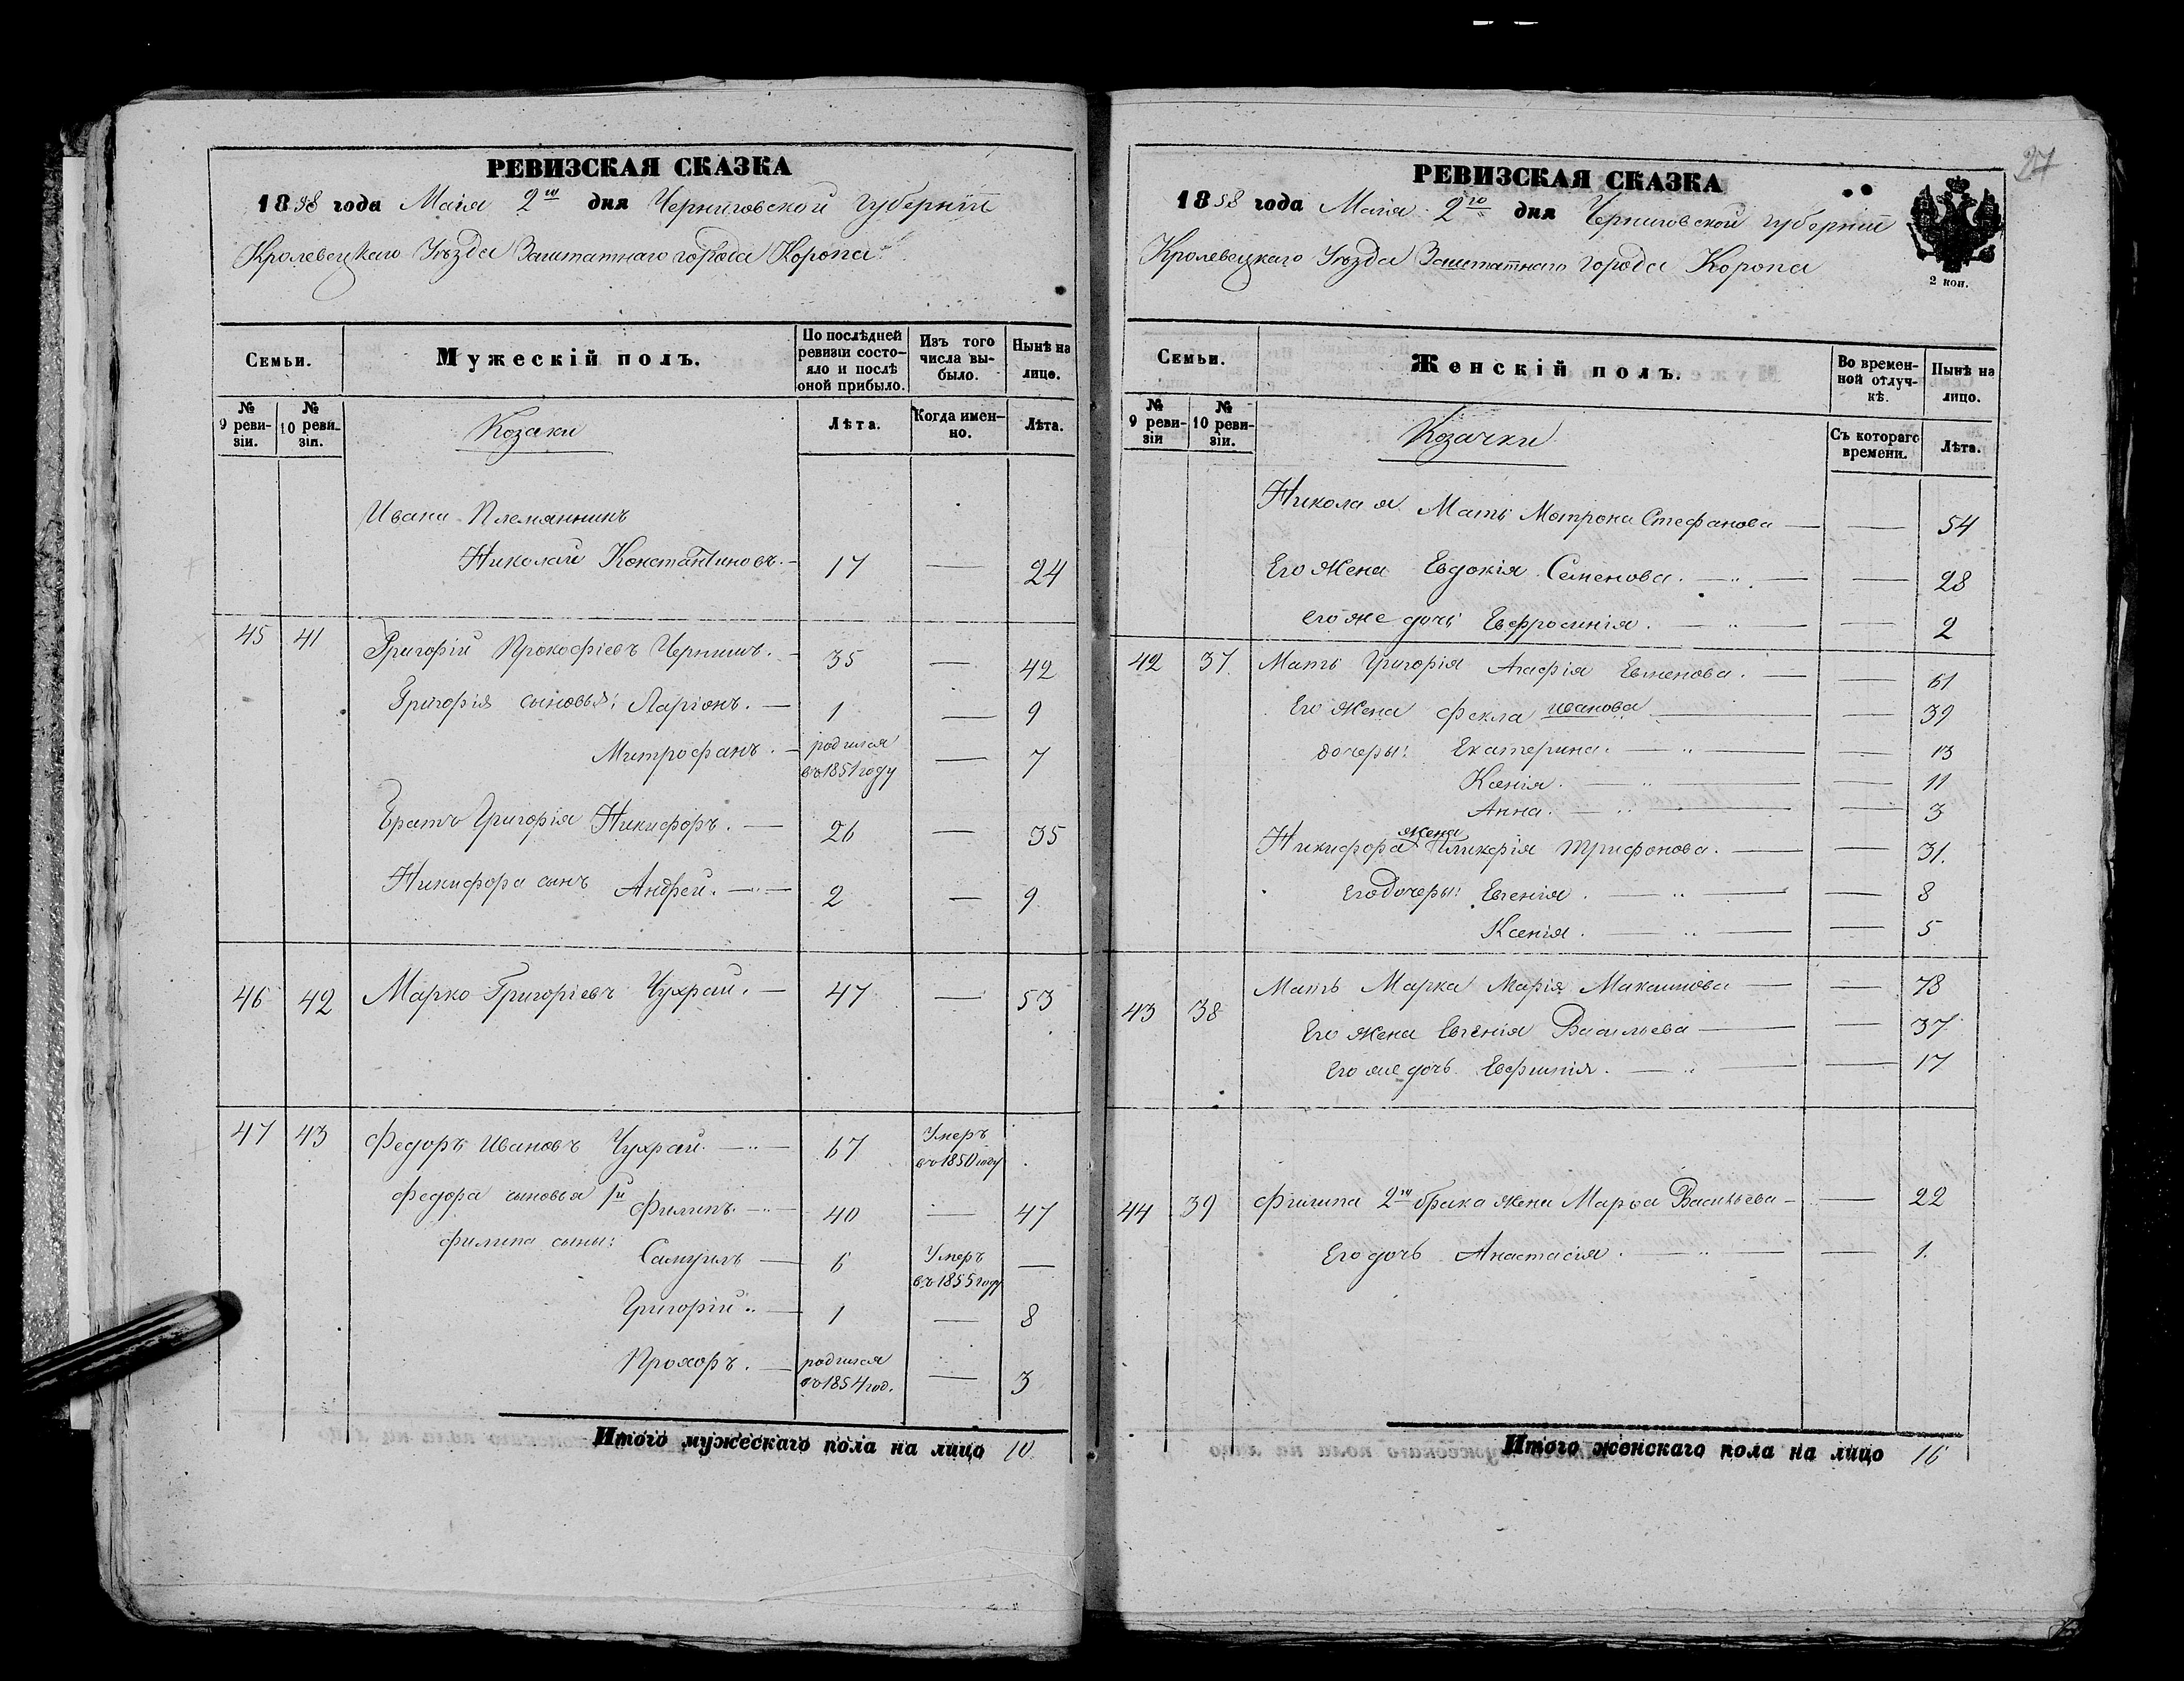 РЕВИЗСКАЯ СКАЗКА
1858 года Маія 2го дня Черниговской губерніи
Кролевецкаго Уѣзда Заштатнаго города Коропа
Семьи.
Мужескій полъ.
По послѣдней ревизіи состояло и послѣ оной прибыло.
Изъ того числа выбыло.
Нынѣ на лицо.
№ 9 ревизіи.
№ 10 ревизіи.
Козаки
Лѣта.
Когда именно.
Лѣта.
Ивана Племянникъ
Николай Константиновъ. 17 — 24
45 41 Григорій Прокофіевъ Чернышъ. 35 — 42
Григорія сыновья: Ларіонъ. — 1 — 9
Митрофанъ. — родился въ 1851 году — 7
Братъ Григорія Никифоръ. — 26 — 35
Никифора сынъ Андрей. — 2 — 9
46 42 Марко Григоріевъ Чухрай. — 47 — 53
47 43 Федоръ Ивановъ Чухрай. — 67 Умеръ въ 1850 году
Федора сыновья 1й Филипъ. — 40 — 47
Филипа сыны: Самуилъ — 6 Умеръ въ 1855 году —
Григорій — 1 — 8
Прохоръ. — родился въ 1854 год. — 3
Итого мужескаго пола на лицо 10.
27
РЕВИЗСКАЯ СКАЗКА
1858 года Маія 2го дня Черниговской губерніи
Кролевецкаго Уѣзда Заштатнаго города Коропа
2 коп.
Семьи.
Женскій полъ.
Во временной отлучкѣ.
Нынѣ на лицо.
№ 9 ревизіи
№ 10 ревизіи.
Козачки
Съ котораго времени.
Лѣта.
Николая Мать Мотрона Стефанова — — 54
Его Жена Евдокія Семенова. — — 28
его же дочь Евфросинія. — — 2
42 37. Мать Григорія Агафія Евменова. — — 61
Его Жена Фекла Иванова — — 39
дочеры: Екатерина. — — 13
Ксенія. — — 11
Анна. — — 3
Никифора жена Гликерія Трифонова. — — 31.
Его дочеры: Евгенія. — — 8
Ксенія. — — 5
43 38 Мать Марка Марія Максимова — — 78
Его Жена Евгенія Васильева — — 37
Его же дочь Евфимія. — — 17
44 39 Филипа 2го брака жена Марья Васильева — — 22
Его дочь Анастасія. — — 1.
Итого женскаго пола на лицо 16